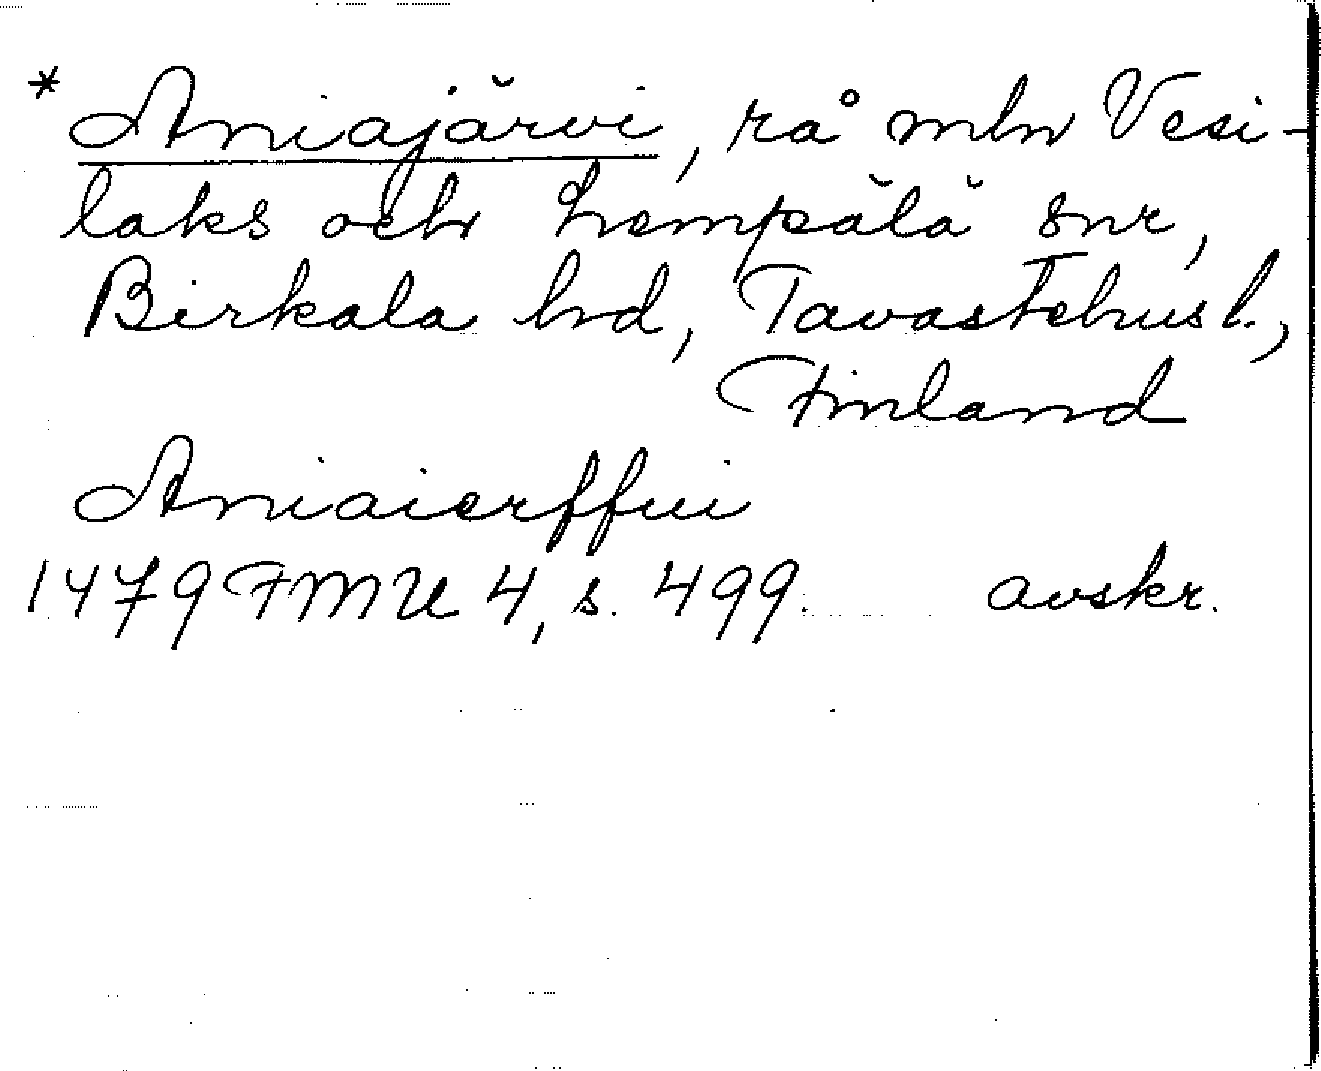 * Aniajärvi, rå mln Vesi-
laks och Lempälä snr,
Birkala hd, Tavastehus l.,
Finland
Aniaierffui
1479 FMU 4, s. 499. avskr.